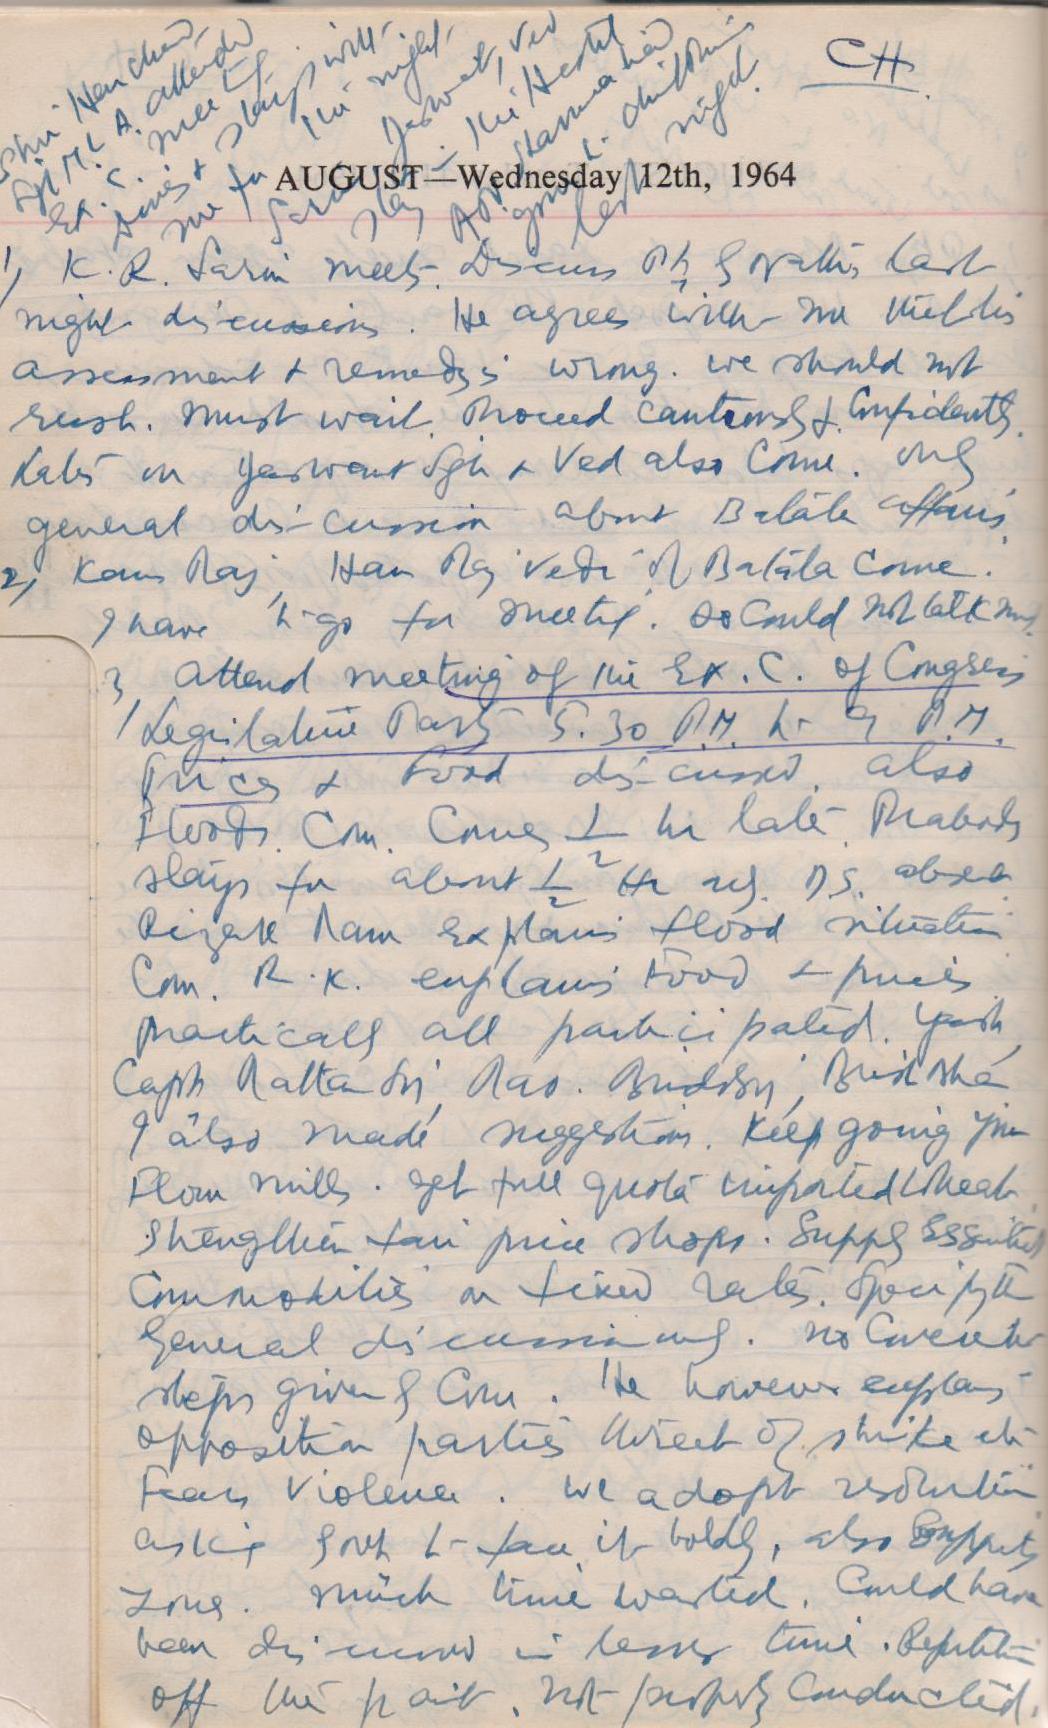 CH.
Shri
M.L.A. attends
Ex. C. meeting
Dines & stays with
me for the night.
Jaswant, Ved
stay in the Hostel
last night.
AUGUST—Wednesday 12th, 1964
1) K. R. Sarin meets. Discuss last
night discussions. He agrees with me that his
assessment & remedy is wrong. We should not
rush. Must wait. Proceed cautiously & Confidently.
Later on Jaswant Sgh & Ved also Come. Only
general discussion about Batala affairs.
2) Raj, Raj Vedi of Batala Come.
I have to go for meeting. So Could not talk much.
3) Attend meeting of the Ex. C. of Congress
Legislative Party 5.30 P.M. to 9 P.M.
Prices & Food discussed. also
Floods. Com. Comes 1/2 hr late. Prabodh
stays for about 1/2 Hr only. D.S. absent
Rizak Ram explains flood situation
Com. R.K. explains Food & prices
Practically all participated. Yash,
Capt Rattan Sgh, Rao. Birendra Sgh,
I also made suggestions. Keep going your
Flour mills. Get full quota imported Wheat.
Strengthen fair price shops. Supply Essential
Commodities on fixed rates.
General discussion only. No Concrete
steps given by Com. He however explains
opposition parties threat of strike etc
Fears Violence. We adopt resolution
asking Govt to face it boldly, also Supports
Zone. Much time wasted. Could have
been discussed in lesser time. Repetition
off the point. Not properly Conducted.